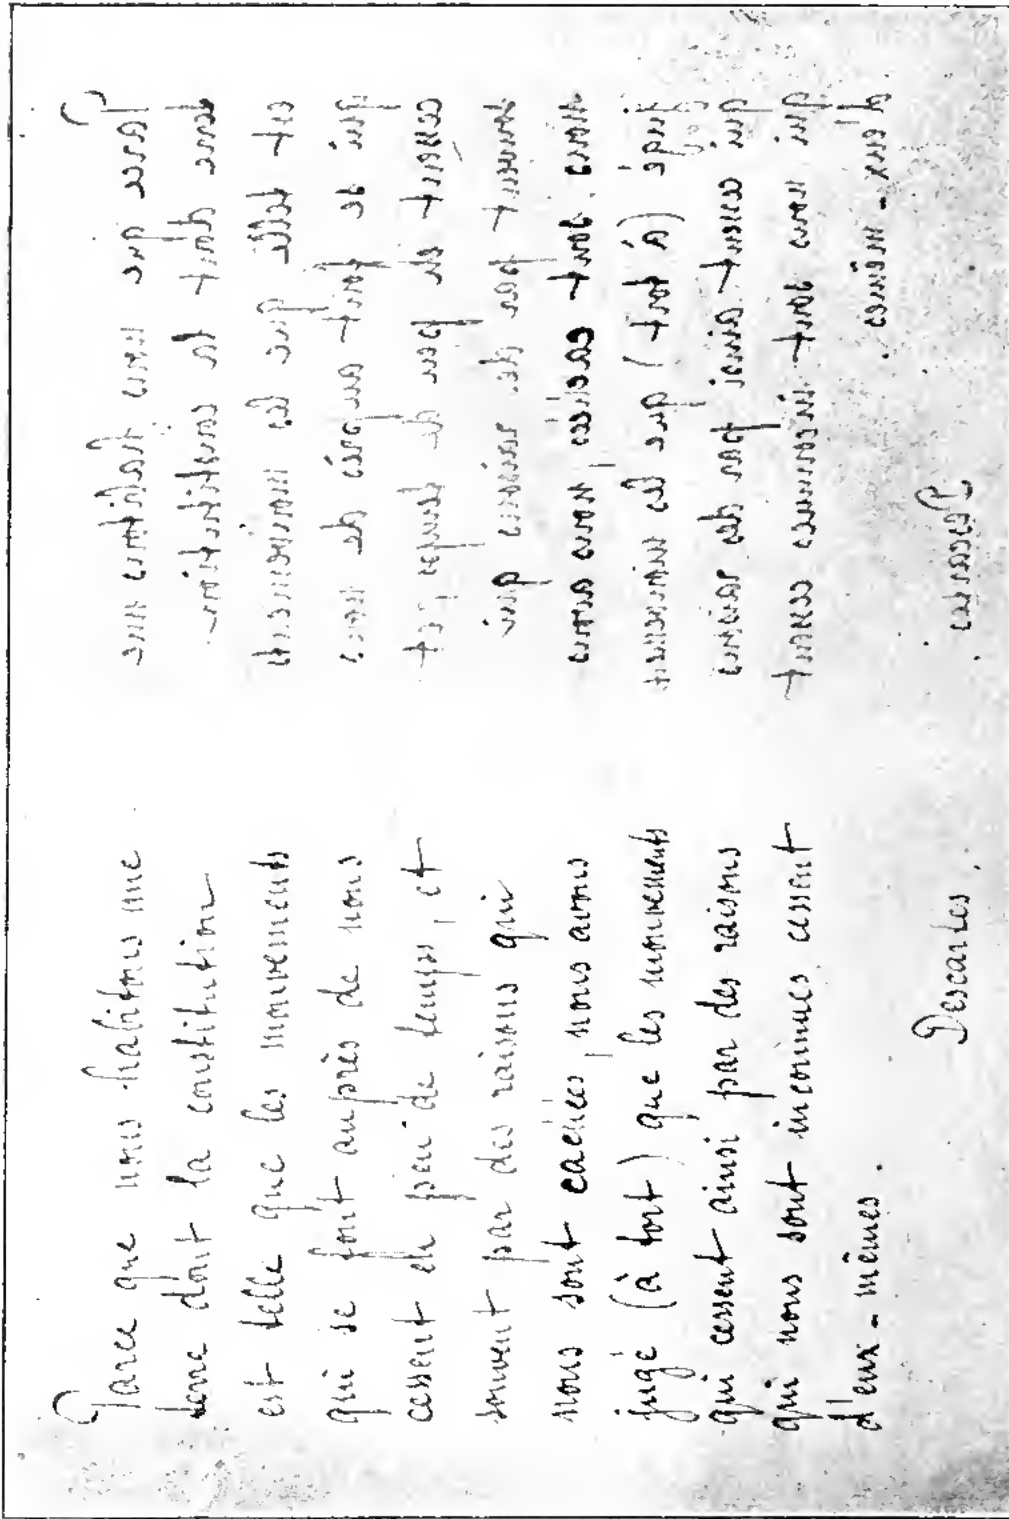 Parce que nous habitons une
terre dont la constitution
est telle que les mouvements
qui se font auprès de nous
cessent en peu de temps, et
souvent par des raisons qui
nous sont cachées, nous avons
jugé (à tort) que les mouvements
qui cessent ainsi par des raisons
qui nous sont inconnues cessent
d'eux-mêmes.
Descartes.
Parce que nous habitons une
terre dont la constitution
est telle que les mouvements
qui se font auprès de nous
cessent en peu de temps, et
souvent par des raisons qui
nous sont cachées, nous avons
jugé (à tort) que les mouvements
qui cessent ainsi par des raisons
qui nous sont inconnues cessent
d'eux-mêmes.
Descartes